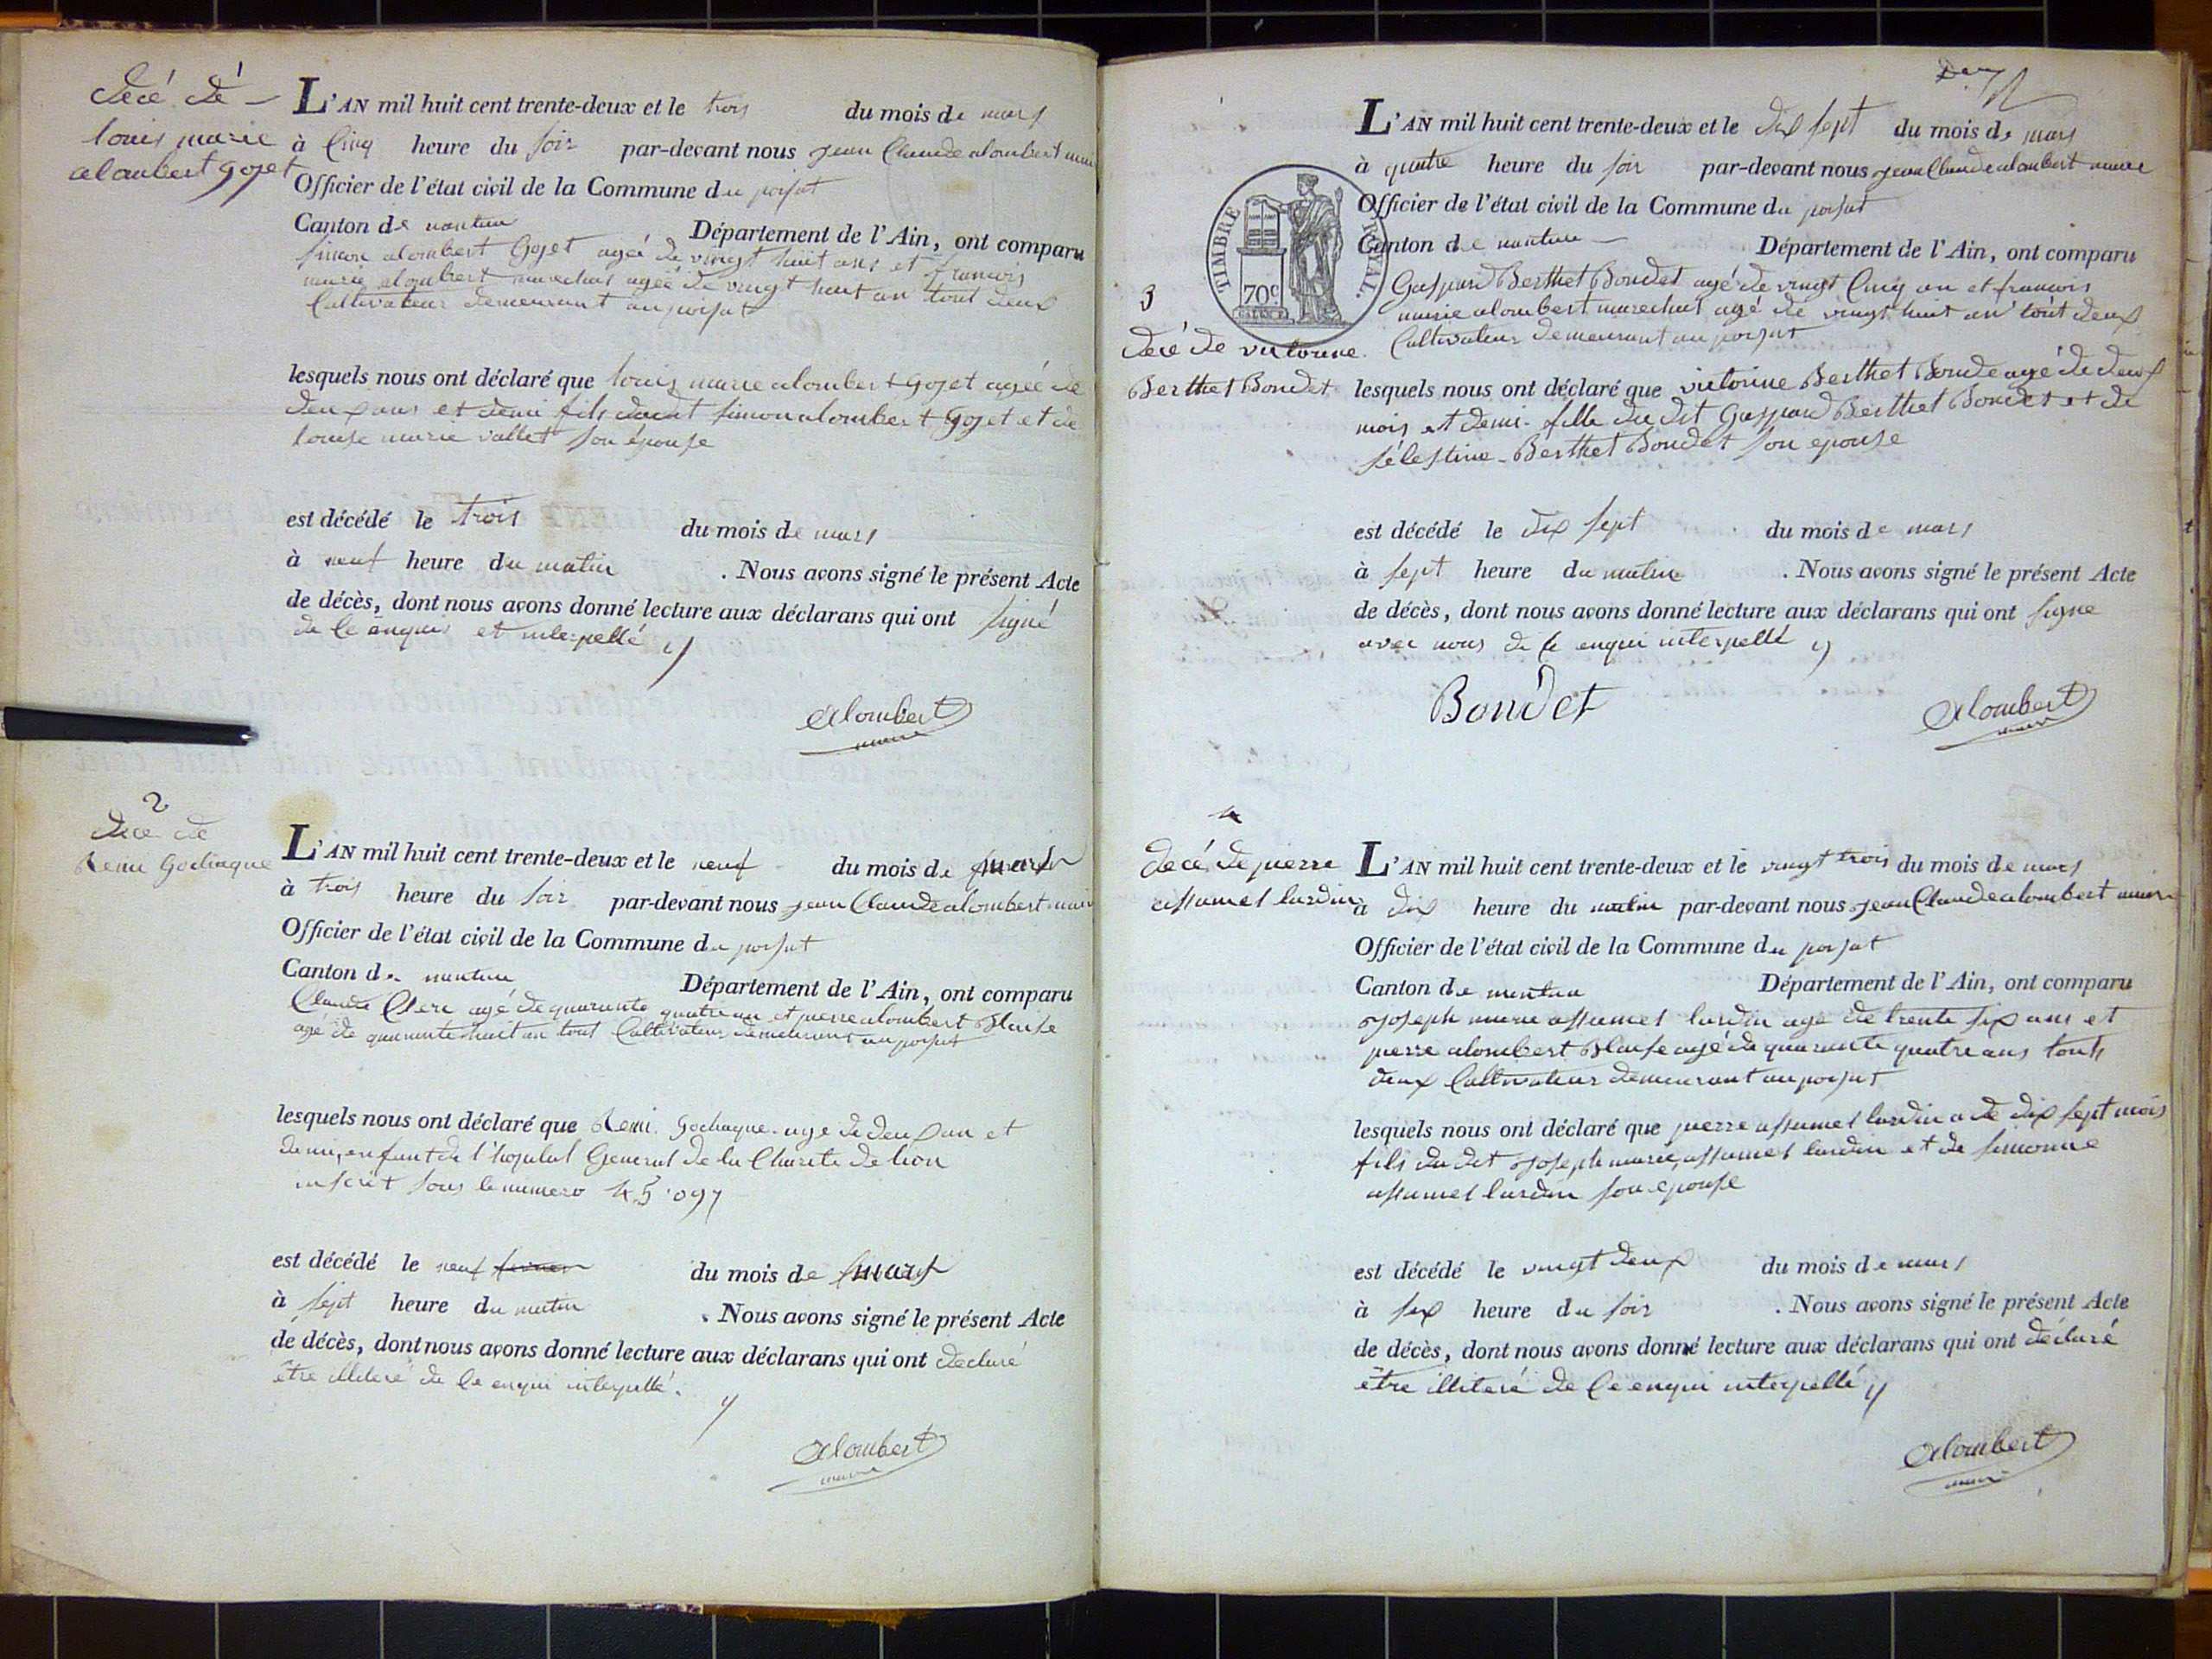 1
decé de
louis marie
alombert gojet
L'AN mil huit cent trente-deux et le trois du mois de mars
à Cinq heure du soir par-devant nous jean Claude alombert maire
Officier de l'état civil de la Commune du poisat
Canton de nantua Département de l'Ain, ont comparu
simon alombert Gojet agée de vingt huit ans et francois
marie alombert marechal agée de vingt huit an tout deux
Cultivateur demeurant au poisat
lesquels nous ont déclaré que louis marie alombert Gojet agée de
deux ans et demi fils dudit simon alombert Gojet et de
louise marie vallet son épouse
est décédé le trois du mois de mars
à neuf heure du matin . Nous avons signé le présent Acte
de décès, dont nous avons donné lecture aux déclarans qui ont signé
de Ce enquis et interpellé
Alombert
maire
2
decé de
Remi Godiaque
L'AN mil huit cent trente-deux et le neuf du mois de mars
à trois heure du soir par-devant nous jean Claude alombert maire
Officier de l'état civil de la Commune du poisat
Canton de nantua Département de l'Ain, ont comparu
Claude Clerc agé de quarante quatre an et pierre alombert Blaise
agé de quarante huit an tout Cultivateur demeurant au poisat
lesquels nous ont déclaré que Remi Godiaque age de deux an et
demi, enfant de l'hopital General de la Charite de lion
inscrit sous le numero 45'097
est décédé le neuf du mois de mars
à sept heure du matin . Nous avons signé le présent Acte
de décès, dont nous avons donné lecture aux déclarans qui ont declaré
être illiteré de Ce enqui interpellé.
Alombert
maire
TIMBRE ROYAL.
70c
3
decé de victorine
Berthet Bondet
L'AN mil huit cent trente-deux et le dix sept du mois de mars
à quatre heure du soir par-devant nous jean Claude alombert maire
Officier de l'état civil de la Commune du poisat
Canton de nantua Département de l'Ain, ont comparu
Gaspard Berthet Bondet agé de vingt Cinq an et francois
marie alombert marechal agé de vingt huit an tout deux
Cultivateur demeurant au poisat
lesquels nous ont déclaré que victorine Berthet Bonde agé de deux
mois et demi fille du dit Gaspard Berthet Bondet et de
sélestine Berthet Bondet son epouse
est décédé le dix sept du mois de mars
à sept heure du matin . Nous avons signé le présent Acte
de décès, dont nous avons donné lecture aux déclarans qui ont signe
avec nous de Ce enqui interpellé
Bondet
Alombert
maire
4
decé de pierre
assumel lurdin
L'AN mil huit cent trente-deux et le vingt trois du mois de mars
à dix heure du matin par-devant nous jean Claude alombert maire
Officier de l'état civil de la Commune du poisat
Canton de nantua Département de l'Ain, ont comparu
joseph marie assumel lurdin age de trente six ans et
pierre alombert Blaise agé de quarante quatre ans touts
deux Cultivateur demeurant au poisat
lesquels nous ont déclaré que pierre assumel lurdin a de dix sept mois
fils du dit joseph marie assumel lurdin et de simonne
assumel lurdin son epouse
est décédé le vingt deux du mois de mars
à six heure du soir . Nous avons signé le présent Acte
de décès, dont nous avons donné lecture aux déclarans qui ont déclaré
être illiteré de Ce enqui interpellé
Alombert
maire